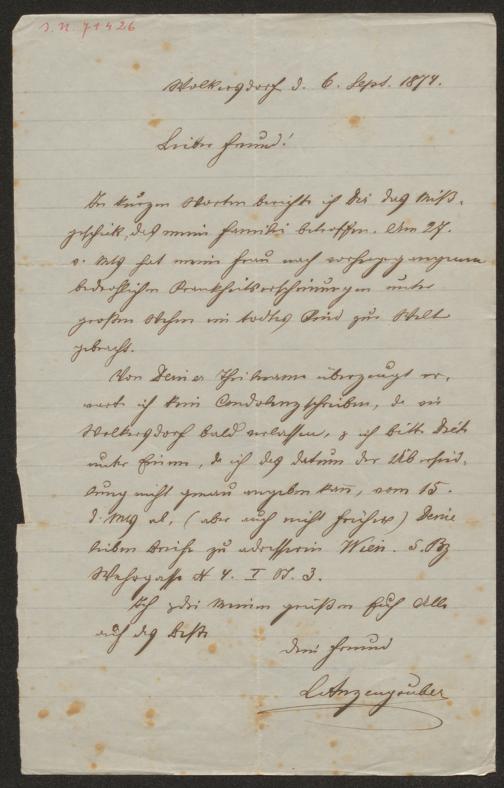 J. N. 71426
Wolkersdorf d. 6. Sept. 1874.
Lieber Freund!
In kurzen Worten berichte ich Dir das Miß-
geschick, das meine Familie betroffen. Am 27.
v. Mts hat meine Frau nach vorhergegangenen
bedrohlichen Krankheitserscheinungen unter
großen Wehen ein todtes Kind zur Welt
gebracht.
Von Deiner Theilname überzeugt er-
warte ich kein Condolenzschreiben, da wir
Wolkersdorf bald verlassen, & ich bitte Dich
unter Einem, da ich das Datum der Übersied-
lung nicht genau angeben kann, vom 15.
d. Mts ab, (aber auch nicht früher) Deine
lieben Briefe zu adressieren Wien. 5. Bz
Wehrgasse N 4. I St. 3.
Ich & die Meinen grüßen Euch Alle
auf das Beste
Dein Freund
LAnzengruber